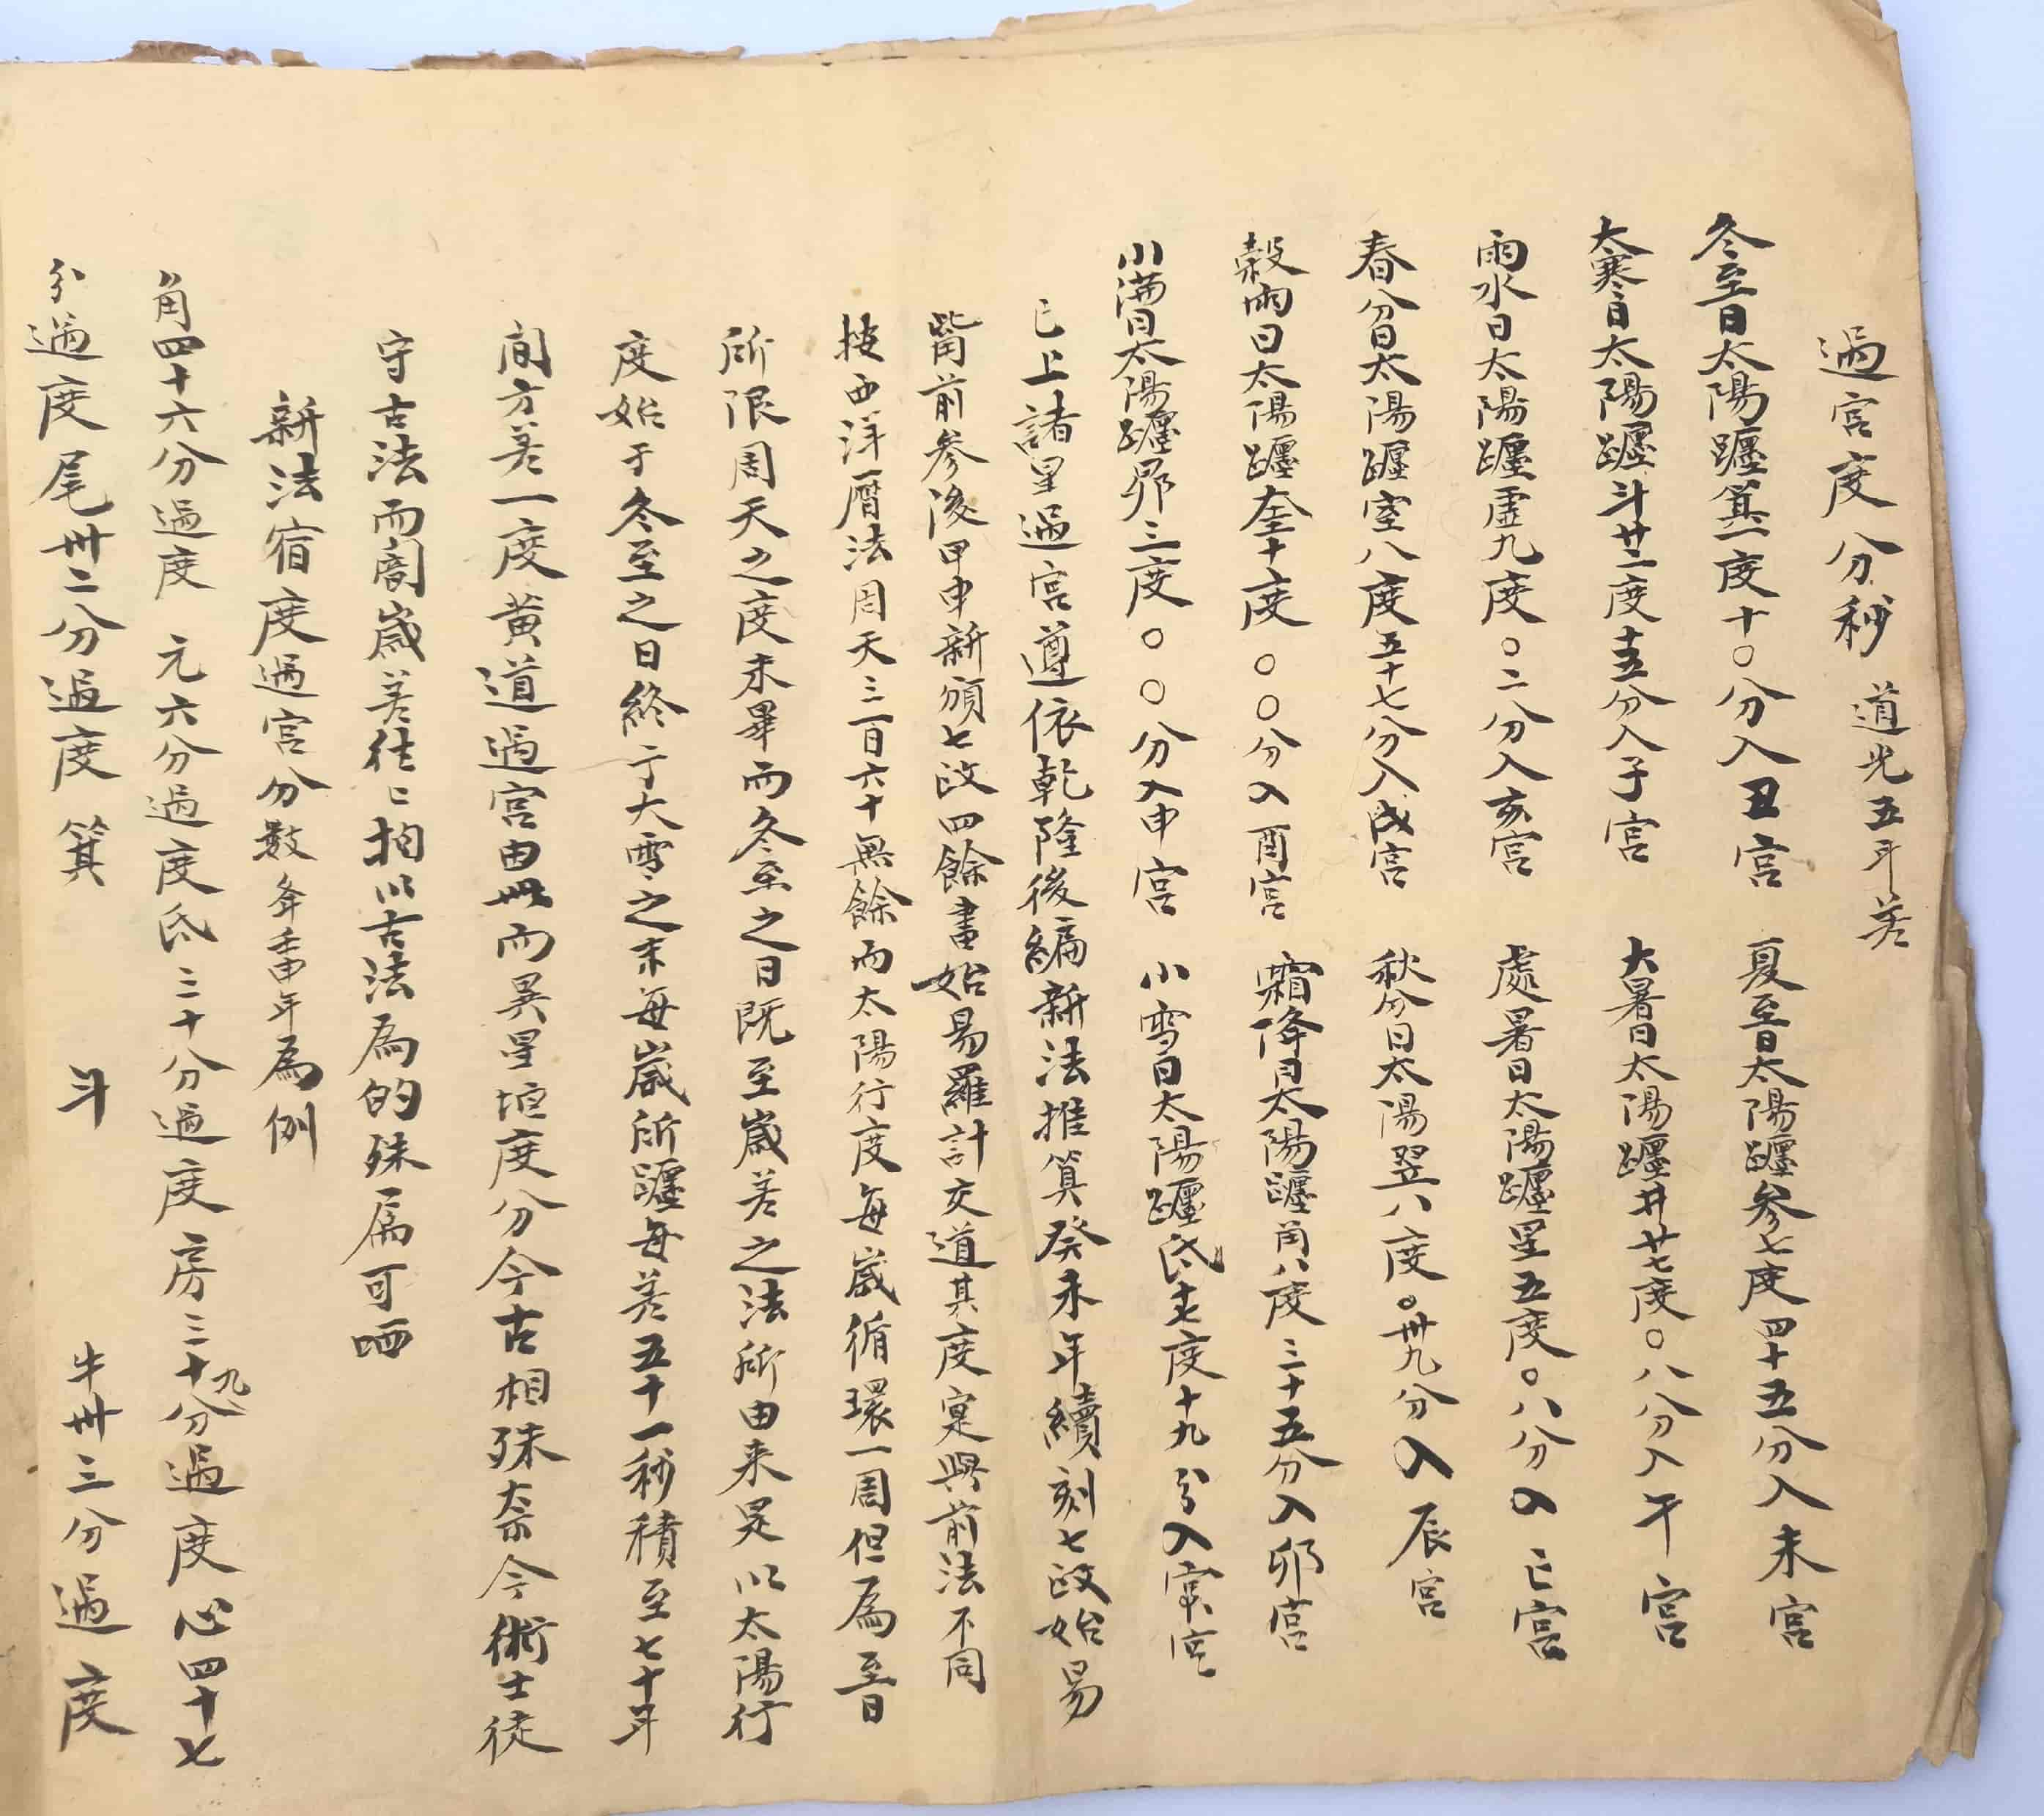 過宮度分秒 道光五年差
冬至日太陽躔箕一度十〇分入丑宮 夏至日太陽躔參七度四十五分入未宮
大寒日太陽躔斗廿二度十五分入子宮 大暑日太陽躔井廿七度〇八分入午宮
雨水日太陽躔虛九度〇二分入亥宮 處暑日太陽躔星五度〇八分入巳宮
春分日太陽躔室八度五十七分入戌宮 秋分日太陽翌八度〇卅九分入辰宮
穀雨日太陽躔奎十度〇〇分入酉宮 霜降日太陽躔角八度三十五分入卯宮
小滿日太陽躔昴三度〇〇分入申宮 小雪日太陽躔氐十七度十九分入寅宮
已上諸星過宮遵依乾隆後編新法推算癸未年續刻七政始易
觜前參後甲申新頒七政四餘書始易羅計交道其度寔與前法不同
按西洋曆法周天三百六十無餘而太陽行度每歲循環一周但為至日
所限周天之度未畢而冬至之日既至歲差之法所由来是以太陽行
度始于冬至之日終于大雪之末每歲所躔每差五十一秒積至七十年
間方差一度黃道過宮由此而異星垣度分今古相殊奈今術士徒
守古法而闇歲差往〻拘以古法為的殊為可哂
新法宿度過宮分數 年為例
角四十六分過度 亢六分過度氐三十分過度房三十九分過度心四十七
分過度尾卅二分過度箕 斗 牛卅三分過度